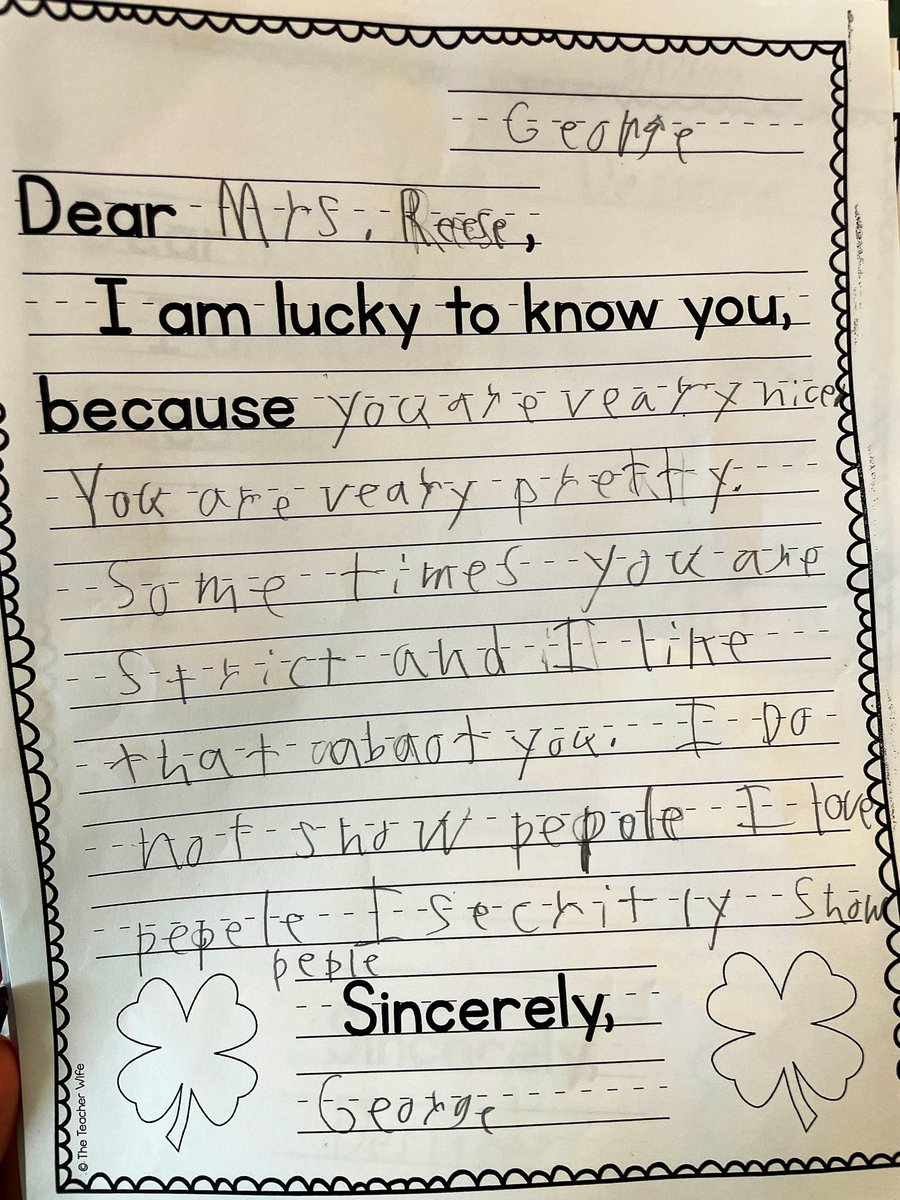 George
Dear Mrs. Reese,
I am lucky to know you,
because you are veary nice
You are veary pretty.
Some times you are
strict and I like
that abaot you. I Do
not show pepole I love
pepele I secritly show
peple
Sincerely,
George
© The Teacher Wife